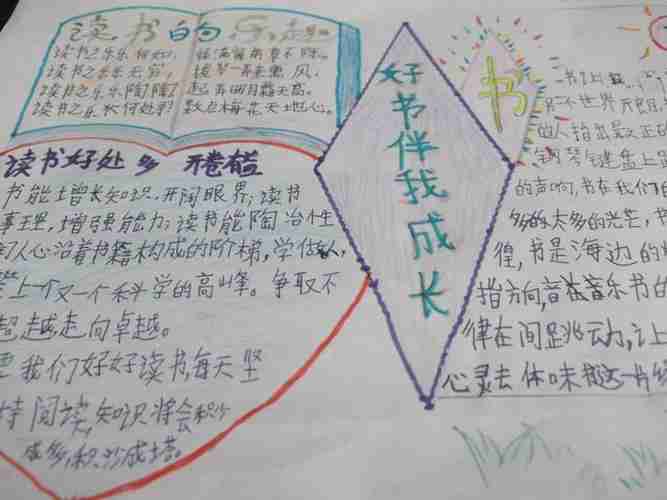 读书的乐趣
读书之乐乐何如，
绿满窗前草不除。
读书之乐乐无穷，
拨琴一弄来薰风，
读书之乐乐陶陶，
起弄明月霜天高。
读书之乐何处寻，
数点梅花天地心。
读书好处多 开卷有益
书能增长知识，开阔眼界；读书
事理，增强能力；读书能陶冶性
们人心沿着书籍构成的阶梯，学做人，
登上一个又一个科学的高峰。争取不
超越走向卓越。
我们好好读书，每天坚
持阅读，知识将会积少
成多，积沙成塔。
好书伴我成长
书
的声响，书在我们
多的太多的光芒，书
徨，书是海边的
指方向，音在音乐书的
律在间跳动，让
心灵去体味书这一片